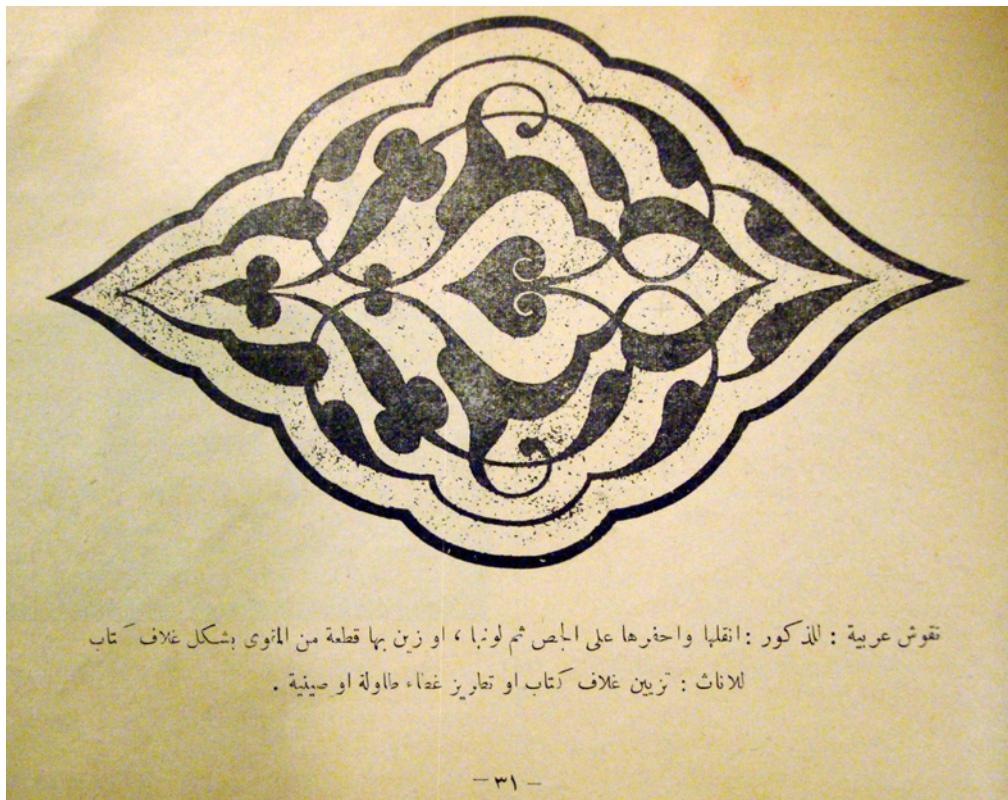 نقوش عربية : للذكور : انقلها واحفرها على الجص ثم لونها ، او زين بها قطعة من المقوى بشكل غلاف كتاب
للاناث : تزيين غلاف كتاب او تطريز غطاء طاولة او صينية .
– ٣١ –